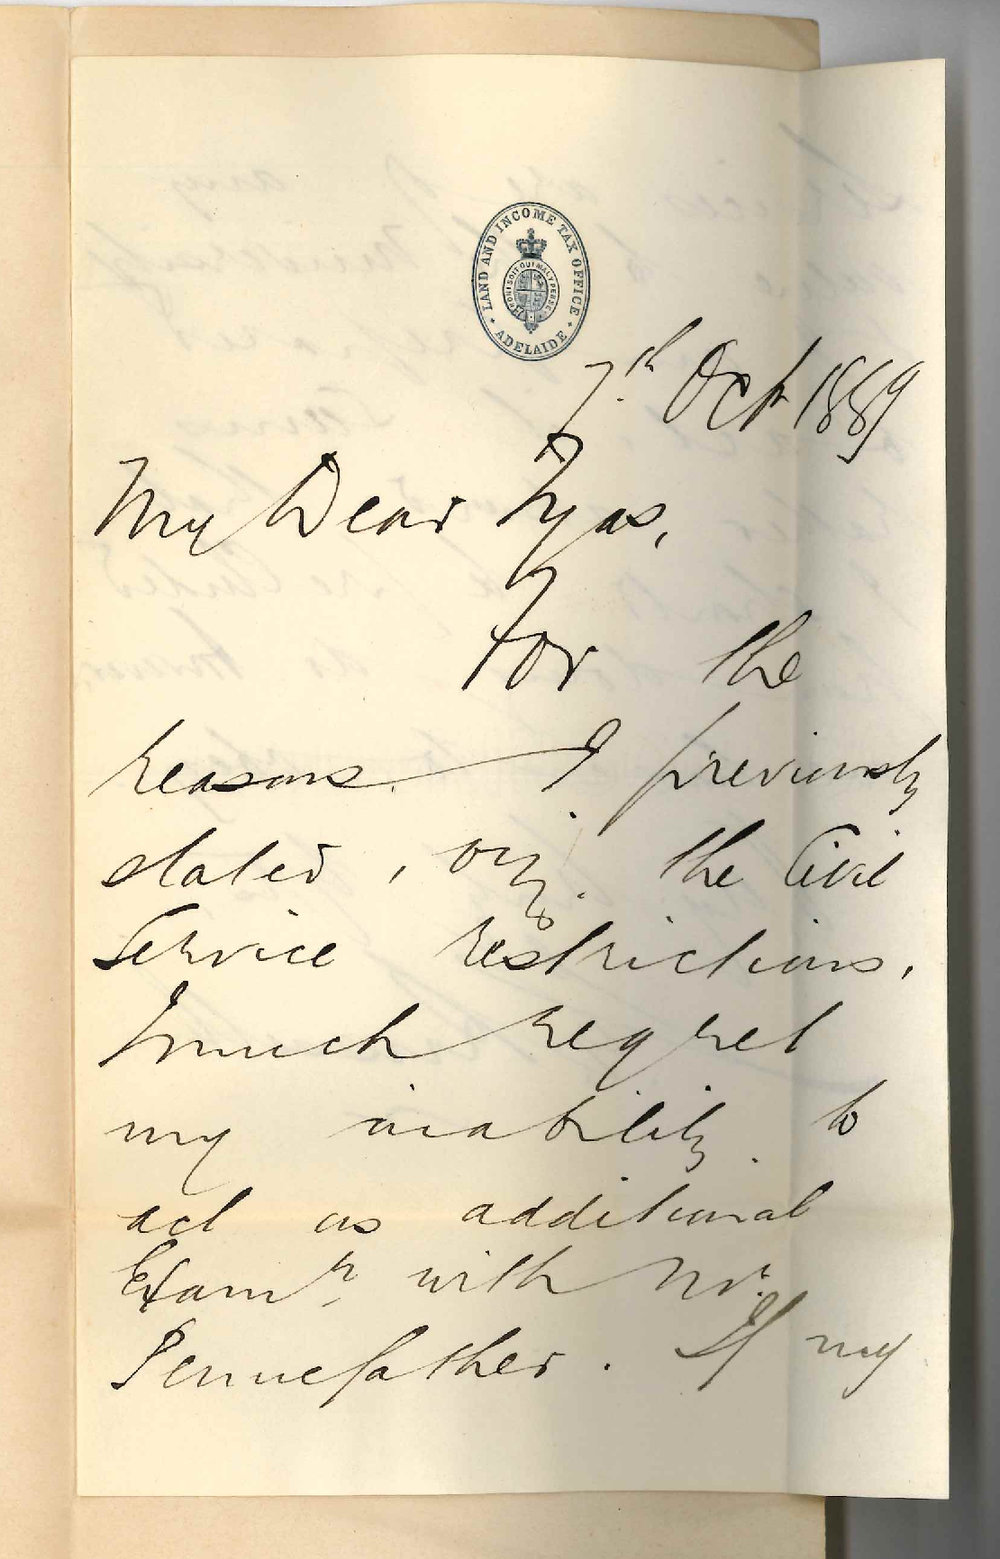 LAND AND INCOME TAX OFFICE
HONI SOIT QUI MAL Y PENSE
ADELAIDE
7th Oct 1889
My Dear Tyas,
For the
reasons I previously
stated, viz. the Civil
Service restrictions,
I much regret
my inability to
act as additional
Examr. with Mr.
Pennefather. If my